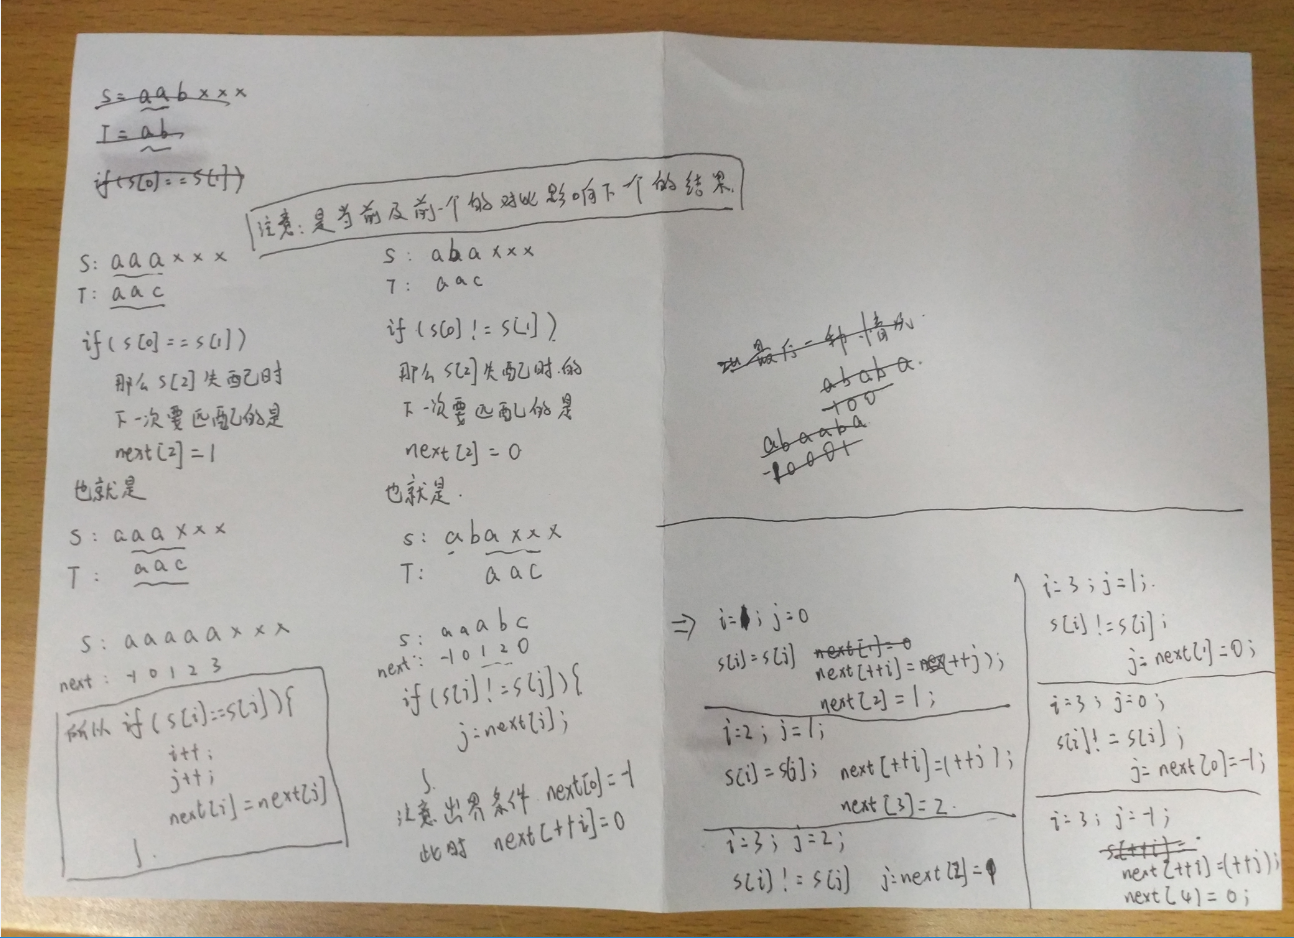 S= aabxxx
T= ab
if(s[0]==s[1])
注意:是当前及前一个的对比影响下一个的结果.
S: aaaxxx
T: aac
if(s[0]==s[1])
那么s[2]失配时
下一次要匹配的是
next[2]=1
也就是
S: aaaxxx
T: aac
S: aaaaaxxx
next: -1 0 1 2 3
所以 if(s[i]==s[j]){
i++;
j++;
next[i]=next[j]
}.
S: abaxxx
T: aac
if(s[0]!=s[1])
那么s[2]失配时.的
下一次要匹配的是
next[2]=0
也就是.
S: abaxxx
T: aac
S: aaabc
next: -1 0 1 2 0
if(s[i]!=s[j]){
j=next[j];
}.
注意出界条件 next[0]=-1
此时 next[++i]=0
最后一种情况.
ababa.
100
abaaba
-10001
⇒ i=1; j=0
s[i]=s[j] next[1]=0
next[++i]=(++j);
next[2]=1;
i=2; j=1;
s[i]=s[j]; next[++i]=(++j);
next[3]=2.
i=3; j=2;
s[i]!=s[j] j=next[2]=1
i=3; j=1;.
s[i]!=s[j];
j=next[1]=0;
i=3; j=0;
s[i]!=s[j];
j=next[0]=-1;
i=3; j=-1;
s[++i]=
next[++i]=(++j);
next[4]=0;